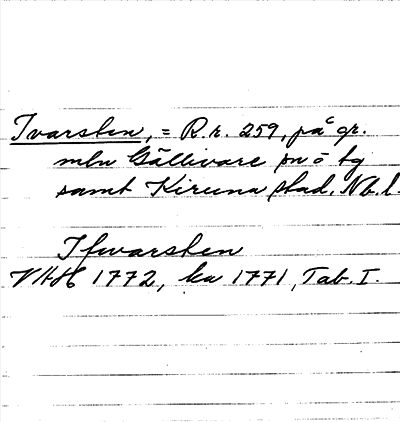 Ivarsten, = R.r. 259, på gr.
mln Gällivare sn o tg
samt Kiruna stad, Nb. l.
Ifwarsten
VAH 1772, ka 1771, Tab. I.